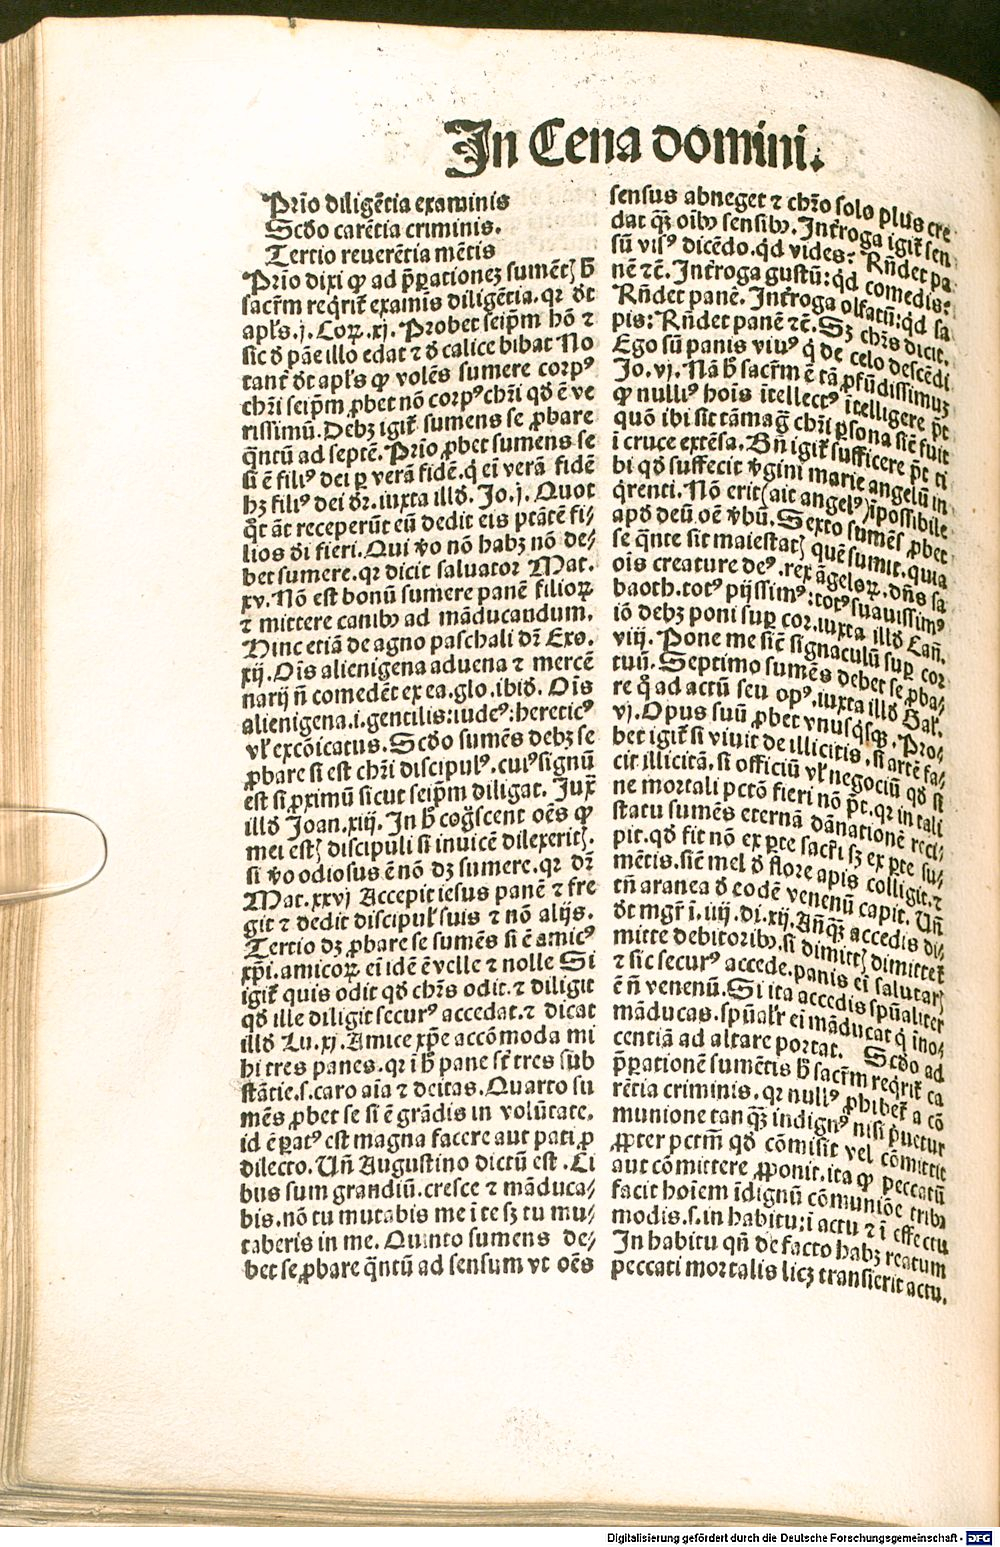 In Cena domini.
Prĩo diligẽtia examinis
Scd̃o carẽtia criminis.
Tertio reuerẽtia mẽtis
Prĩo dixi ꝙ ad p̃ꝑationeꝫ sumẽtꝭ h̃
sacr̃m req̃rit᷑ examĩs diligẽtia. qꝛ d̃t
apl̃s .j. Coꝝ. xj. Probet seip̃m hõ ⁊
sic d̃ pãe illo edat ⁊ d̃ calice bibat No
tant᷑ d̃t apl̃s ꝙ volẽs sumere corpꝰ
chr̃i seip̃m ꝓbet nõ corpꝰ chr̃i qd̃ ẽ ve
rissimũ. Debꝫ igit᷑ sumens se ꝓbare
q̃ntũ ad septẽ. Prĩo ꝓbet sumens se
si ẽ filiꝰ dei ꝑ verã fidẽ. q̃ ei verã fidẽ
hꝫ filiꝰ dei dr̃. iuxta illd̃. Jo. j. Quot
q̃t ãt receperũt eũ dedit eis ptãtẽ fi⸗
lios d̃i fieri. Qui ṽo nõ habꝫ nõ de⸗
bet sumere. qꝛ dicit saluator Mat.
xv. Nõ est bonũ sumere panẽ filioꝝ
⁊ mittere canibꝰ ad mãducandum.
Hinc etiã de agno paschali dr̃ Exo.
xij. Oĩs alienigena aduena ⁊ mercẽ
narij ñ comedẽt ex ea. glo. ibid̃. Oĩs
alienigena .i. gentilis: iudeꝰ: hereticꝰ
vl̃ excõicatus. Scd̃o sumẽs debꝫ se
ꝓbare si est chr̃i discipulꝰ. cuiꝰ signũ
est si ꝓximũ sicut seip̃m diligat. Jux̃
illd̃ Joan. xiij. In h̃ cog̃scent oẽs ꝙ
mei estꝭ discipuli si inuicẽ dilexeritꝭ.
si ṽo odiosus ẽ nõ dꝫ sumere. qꝛ dr̃
Mat. xxvj Accepit iesus panẽ ⁊ fre
git ⁊ dedit discipul̃ suis ⁊ nõ alijs.
Tertio dꝫ ꝓbare se sumẽs si ẽ amicꝰ
xp̃i. amicoꝝ ei idẽ ẽ velle ⁊ nolle Si
igit᷑ quis odit qd̃ chr̃s odit. ⁊ diligit
qd̃ ille diligit securꝰ accedat. ⁊ dicat
illd̃ Lu. xj. Amice xp̃e accõmoda mi
hi tres panes. qꝛ ĩ h̃ pane sr̃t tres sub
stãtie. s. caro aĩa ⁊ deitas. Quarto su
mẽs ꝓbet se si ẽ grãdis in volũtate.
id ẽ ꝑatꝰ est magna facere aut pati ꝓ
dilecto. Uñ Augustino dictũ est. Ci
bus sum grandiũ. cresce ⁊ mãduca⸗
bis. nõ tu mutabis me ĩ te sꝫ tu mu⸗
taberis in me. Quinto sumens de⸗
bet se ꝓbare q̃ntũ ad sensum vt oẽs
sensus abneget ⁊ chr̃o solo plus cre
dat q̃ꝫ oĩbꝰ sensibꝰ. Int̃roga igit᷑ sen
sũ visꝰ dicẽdo. q̃d vides? Rñdet pa
nẽ ⁊c̃. Int̃roga gustũ: q̃d comedis?
Rñdet panẽ. Int̃roga olfactũ: q̃d sa
pis? Rñdet panẽ ⁊c̃. Sꝫ chr̃s dicit.
Ego sũ panis viuꝰ q̃ de celo descẽdi
Jo. vj. Nã h̃ sacr̃m ẽ tã ꝓfũdissimuꝫ
ꝙ nulliꝰ hoĩs ĩtellectꝰ ĩtelligere p̃t
quõ ibi sit tãmag̃ chr̃i ꝑsona siẽ fuit
ĩ cruce extẽsa. Bñ igit᷑ sufficere p̃t ti
bi qd̃ suffecit ṽgini marie angelũ in
q̃renti. Nõ erit (ait angelꝰ) ĩpossibile
apd̃ deũ oẽ ṽbũ. Sexto sumẽs ꝓbet
se q̃nte sit maiestatꝭ quẽ sumit. quia
oĩs creature deꝰ. rex ãgeloꝝ. dñs sa
baoth. totꝰ pijssimꝰ: totꝰ suauissimꝰ
iõ debꝫ poni suꝑ cor. iuxta illd̃ Cañ.
viij. Pone me sic̃ signaculũ suꝑ cor
tuũ. Septimo sumẽs debet se ꝓba⸗
re q̃ ad actũ seu opꝰ. iuxta illd̃ Gal̃.
vj. Opus suũ ꝓbet vnusq̃sqꝫ. Pro⸗
bet igit᷑ si viuit de illicitis. si artẽ fa⸗
cit illicitã. si officiũ vl̃ negociũ qd̃ si
ne mortali pctõ fieri nõ p̃t. qꝛ in tali
statu sumẽs eternã dãnationẽ reci⸗
pit. qd̃ fit nõ ex ꝑte sacr̃i sꝫ ex ꝑte su⸗
mẽtis. sic̃ mel d̃ flore apis colligit. ⁊
tñ aranea d̃ eodẽ venenũ capit. Uñ
d̃t mgr̃ ĩ. iiij. di. xij. Añq̃ꝫ accedis di⸗
mitte debitoribꝰ. si dimittꝭ dimittet᷑
⁊ sic securꝰ accede. panis ei salutarꝭ
ẽ ñ venenũ. Si ita accedis spũaliter
mãducas. spũal̃r ei mãducat q̃ ino⸗
centiã ad altare portat. Scd̃o ad
p̃ꝑationẽ sumẽtis h̃ sacr̃m req̃rit᷑ ca
rẽtia criminis. qꝛ nullꝰ ꝓhibet᷑ a cõ
munione tanq̃ꝫ indignꝰ nisi ꝓpter
pctm̃ qd̃ cõmisit vel cõmittit
aut cõmittere ꝓponit. ita ꝙ peccatũ
facit hoĩem ĩdignũ cõmuniõe tribꝰ
modis. s. in habitu: ĩ actu ⁊ ĩ effectu
In habitu qñ de facto habꝫ reatum
peccati mortalis licꝫ transierit actu.
Digitalisierung gefördert durch die Deutsche Forschungsgemeinschaft - DFG